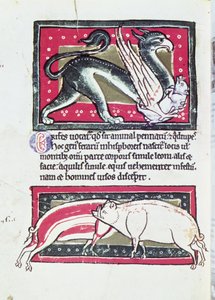 Grifes uocat' qđ sit animal pennatū & q̄drupe
hoc gen' ferarū inhyp̱boreis nascit' locis uł
montib; omī parte corporis simile leoni alis &
facie aquilis simile equis uehementer infestū
nam & homines uisos discerpit.